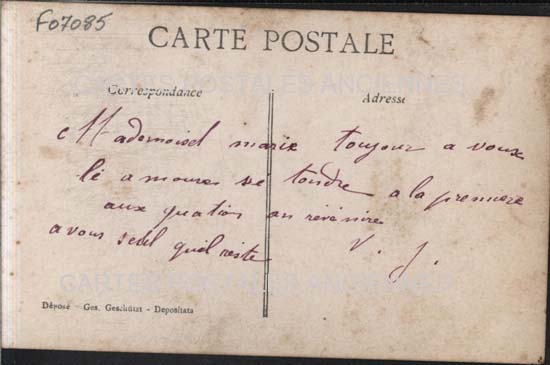 F07085
CARTE POSTALE
CARTES POSTALES ANCIENNES
Correspondance
Adresse
Mademoisel marie toujour a vous
lé amoures se tendre a la premiere
aux quation an révénire
a vous seul quil reste V. J.
CARTES POSTALES ANCIENNES
Déposé - Ges. Geschützt - Depositata